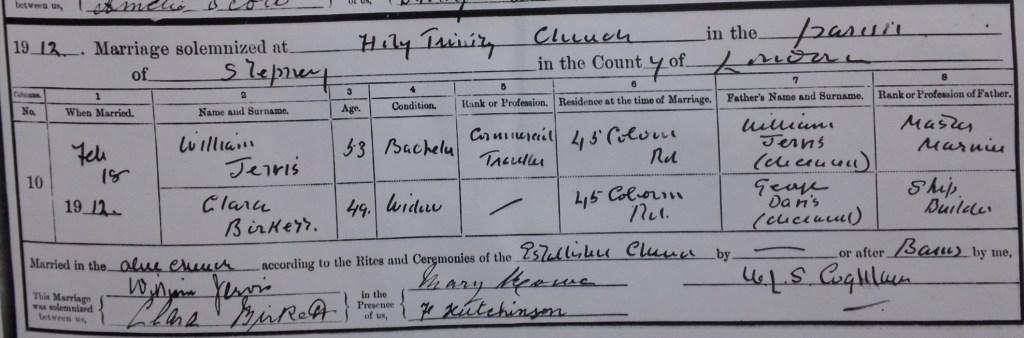 between us, of us,
1912. Marriage solemnized at Holy Trinity Church in the parish
of Stepney in the County of London
Columns. 1 2 3 4 5 6 7 8
No. When Married. Name and Surname. Age. Condition. Rank or Profession. Residence at the time of Marriage. Father's Name and Surname. Rank or Profession of Father.
10
Feb
18
1912.
William
Jervis
53
Bachelor
Commercial
Traveller
45 Coborn
Rd
William
Jervis
(deceased)
Master
Mariner
Clara
Birkett.
49.
Widow
—
45 Coborn
Rd.
George
Davis
(deceased)
Ship
Builder
Married in the above church according to the Rites and Ceremonies of the Established Church by — or after Banns by me,
This Marriage was solemnized between us,
William Jervis
Clara Birkett
in the Presence of us,
Mary
F Hutchinson
W. S. Coghlan